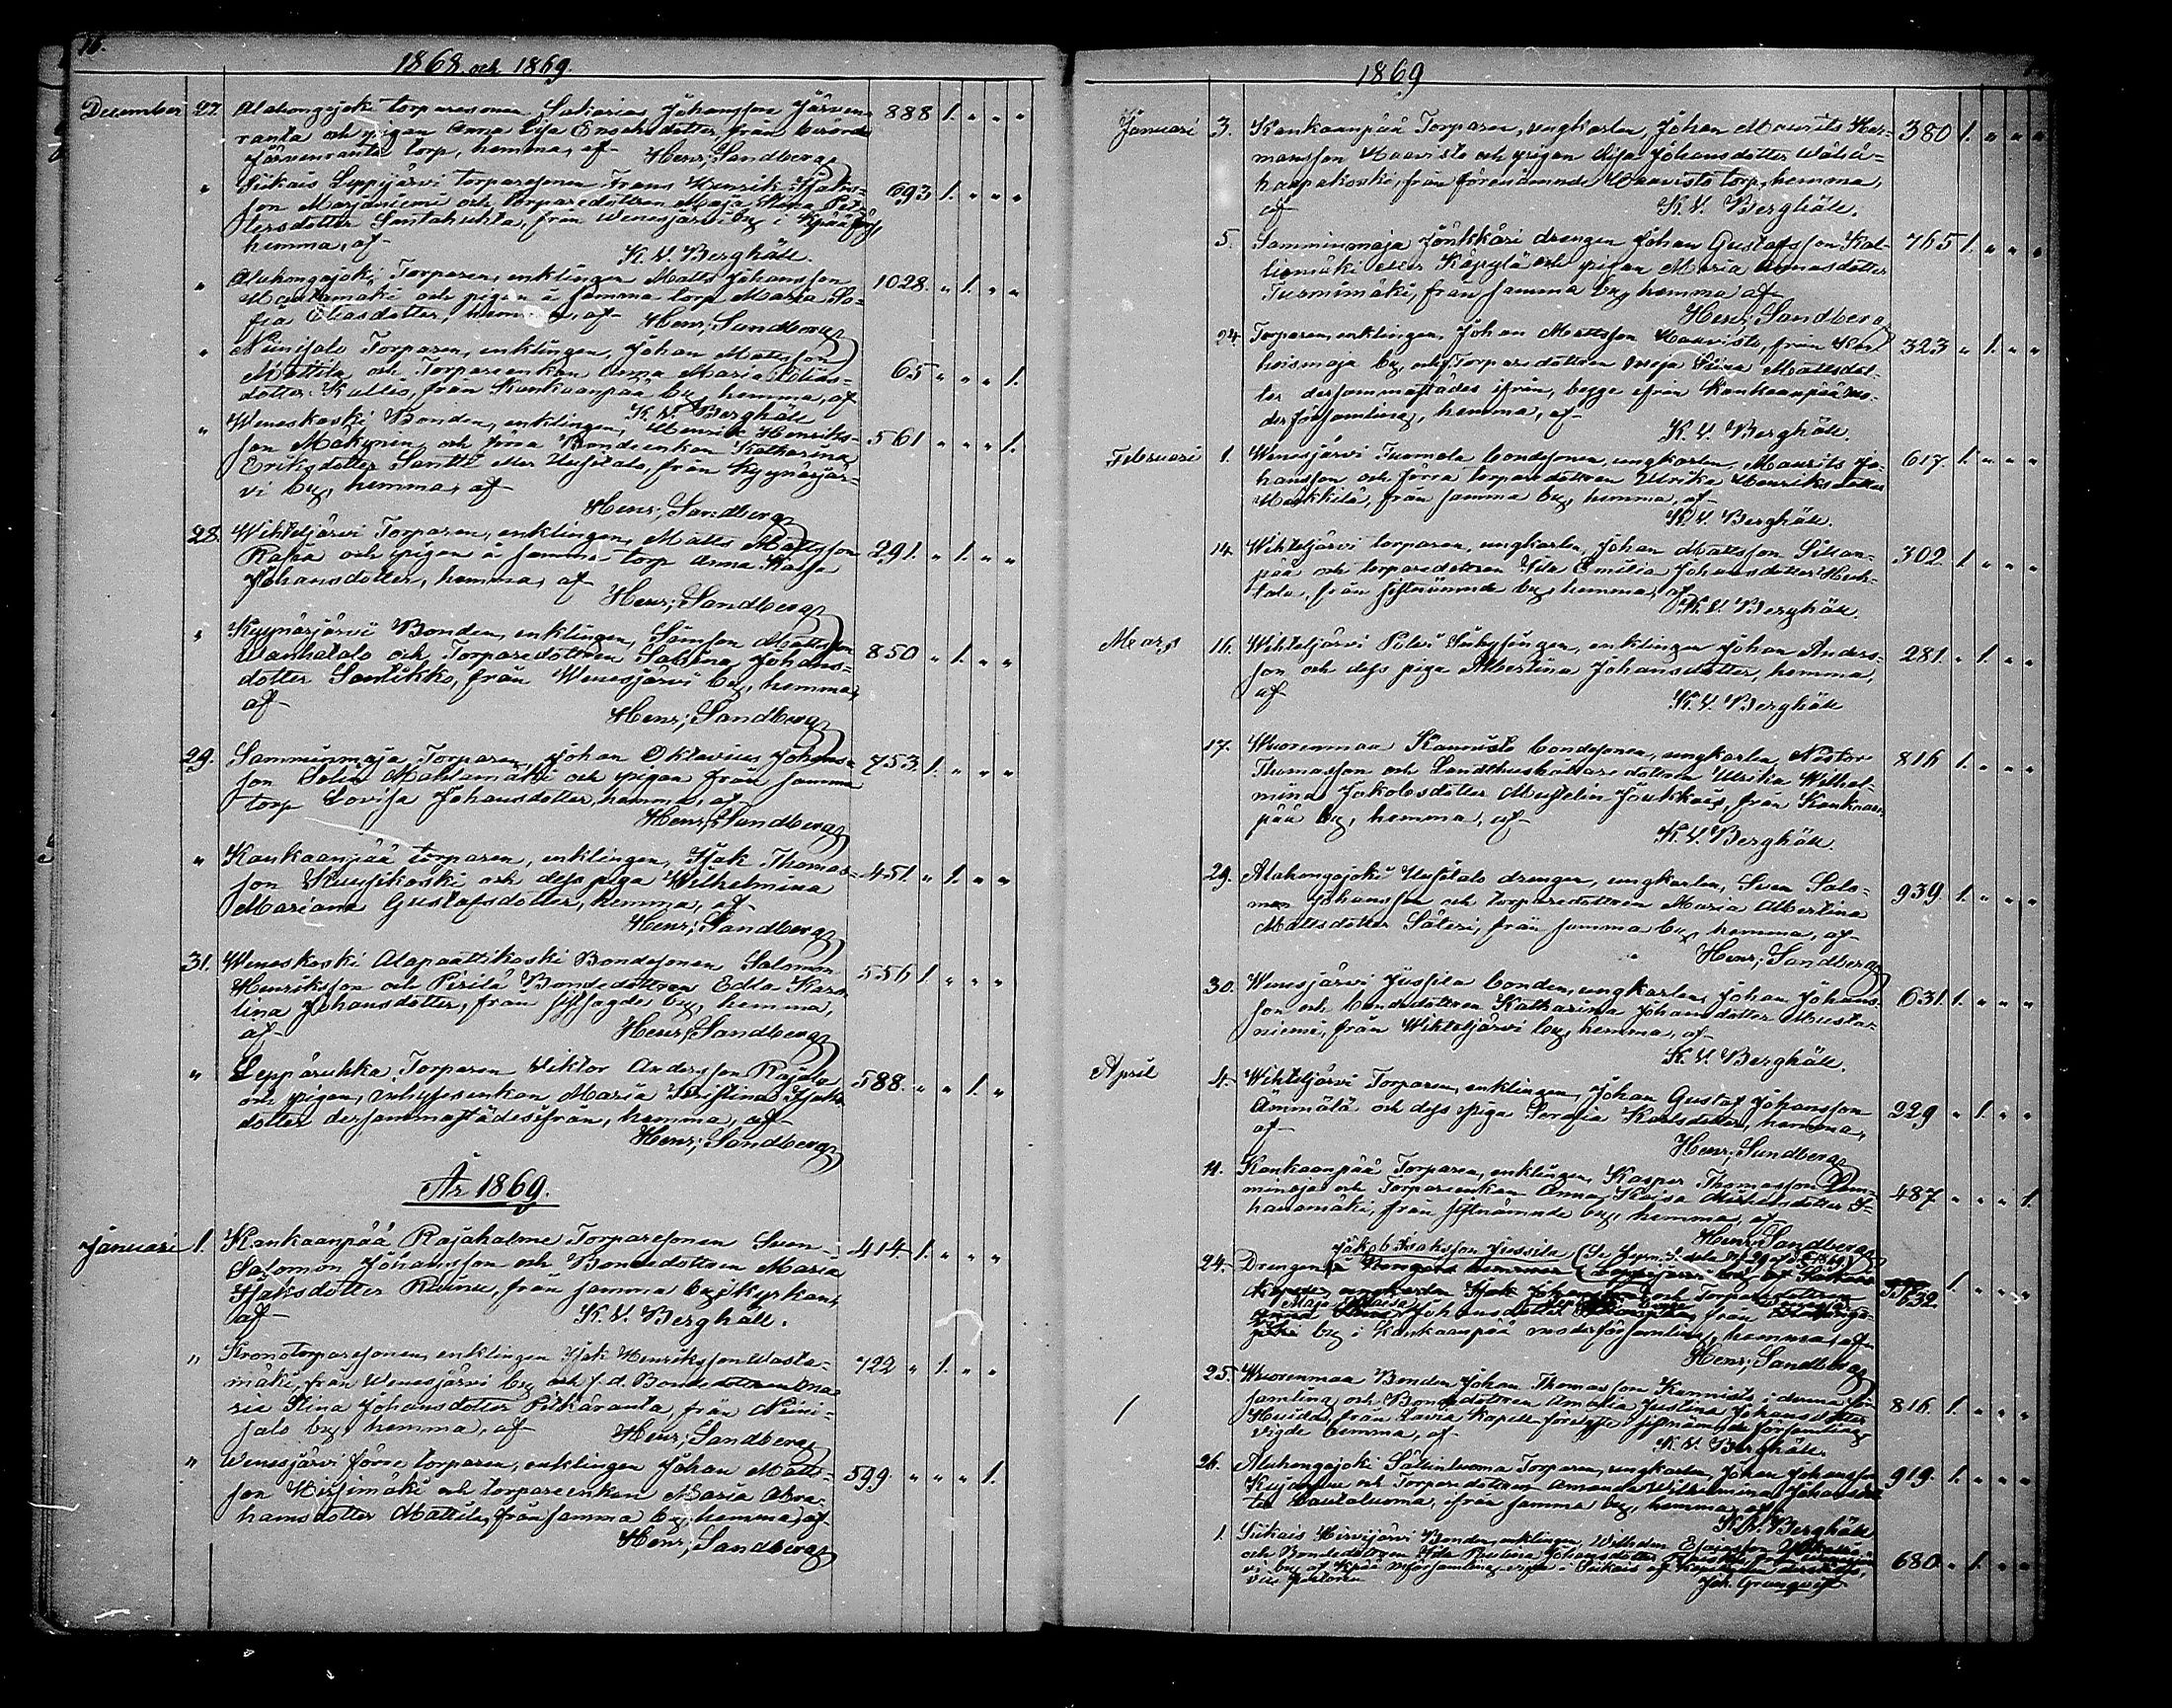 16.
1868 och 1869.
December 27. Alahongojoki torparesonen Sakarias Johansson Järven- 888 1. " " "
ranta och pigan Anna Lisa Enochsdotter, från berörde
Järvenranta torp, hemma, af Henr; Sandberg
" Siikais Leppijärvi torparesonen Frans Henrik Isaks- 693 1. " " "
son Marjaniemi och torparedottren Maja Stina Pet-
tersdotter Santahuhta, från Wenesjärvi by i Kpää fög,
hemma, af
K. V. Berghäll.
" Alahongojoki, Torparen, enklingen Matts Johansson 1028. " 1. " "
Mantamäki och pigan å samma torp Maria So-
fia Eliasdotter, hemma, af Henr; Sandberg
" Niinisalo Torparen, enklingen, Johan Mattsson 65 " " " 1.
Mattila och Torpareenkan Anna Maria Elias-
dotter Kallio, från Kankaanpää by, hemma, af
K. V. Berghäll
" Weneskoski Bonden, enklingen, Henrik Henriks- 561 " " " 1.
son Mäkynin och förra Bondeenkan Katharina
Eriksdotter Santti eller Uusitalo, från Kyynärjär-
vi by, hemma, af
Henr; Sandberg
28. Wihteljärvi Torparen, enklingen, Matts Mattsson 291. " 1. " "
Raha och pigan å samma torp Anna Kaisa
Johansdotter, hemma, af
Henr; Sandberg
" Kyynärjärvi Bonden, enklingen, Simson Mattsson 850 " 1. " "
Wanhatalo och Torparedottren Sabina Johans-
dotter Santikko, från Wenesjärvi by, hemma,
af
Henr; Sandberg
29. Samminmaja Torparen, Johan Oktavius Johans- 753. 1. " " "
son Solin Mahlamäki och pigan från samma
torp Lovisa Johansdotter, hemma, af
Henr; Sandberg
" Kankaanpää torparen, enklingen, Isak Thomas- 451. " 1. " "
son Kuusikoski och dess piga Wilhelmina
Mariana Gustafsdotter, hemma, af
Henr; Sandberg
31. Weneskoski Alapaattikoski Bondesonen Salomon 556 1. " " "
Henriksson och Pirilä Bondedottren Edla Karo-
lina Johansdotter, från sistsagde by, hemma,
af
Henr; Sandberg
" Leppäruhka Torparen Viktor Andersson Rajala 588. " " 1. "
och pigan, inhysesenkan Maria Kristina Isaks-
dotter dersammastädesifrån, hemma, af
Henr; Sandberg
År 1869.
Januari 1. Kankaanpää Rajahalme Torparesonen Sven 414 1. " " "
Salomon Johansson och Bondedottren Maria
Isaksdotter Ruinu, från samma by i kyrkan,
af
K. V. Berghäll.
" Kronotorparesonen, enklingen Isak Henriksson Wasta- 722 " 1. " "
mäki, från Wenesjärvi by och f. d. Bondedottren Ma-
ria Stina Johansdotter Pitkäranta, från Niini-
salo by, hemma, af Henr; Sandberg
" Wenesjärvi förre torparen, enklingen Johan Matts- 599. " " " 1.
son Hirsimäki och torpareenkan Maria Abra-
hamsdotter Mattila, från samma by, hemma, af
Henr; Sandberg
1869
Januari 3. Kankaanpää Torparen, ungkarlen, Johan Maurits Her- 380 1. " " "
mansson Haavisto och pigan Lisa Johansdotter Wähä-
haapakoski, från förenämnde Haavisto torp, hemma,
af
K. V. Berghäll.
5. Samminmaja Jönkkäri drengen Johan Gustafsson Kal- 765 1. " " "
liomäki eller Köpylä och pigan Maria Thomasdotter
Tuomimäki, från samma by, hemma af
Henr; Sandberg
24. Torparen, enklingen, Johan Mattsson Haavisto, från Kar- 323 " 1. " "
hoismaja by, och Torparedottren Maja Stina Mattsdot-
ter dersammastädes ifrån, begge ifrån Kankaanpää mo-
derförsamling, hemma, af
K. V. Berghäll.
Februari 1. Wenesjärvi Tuomela bondesonen, ungkarlen, Maurits Jo- 617. 1. " " "
hansson och förra torparedottren Ulrika Henriksdotter
Markkila, från samma by, hemma, af
K. V. Berghäll.
14. Wihteljärvi torparen, ungkarlen, Johan Mattsson Sillan- 302. 1. " " "
pää och torparedottren Ida Emilia Johansdotter Heik-
talo, från sistnämnde by, hemma, af
K. V. Berghäll.
Mars 16. Wihteljärvi Pölvi Inhysingen, enklingen Johan Anders- 281. " 1. " "
son och dess piga Albertina Johansdotter, hemma,
af
K. V. Berghäll
17. Wuorenmaa Kannisto bondesonen, ungkarlen, Nestor 816 1. " " "
Thomasson och Landthushållaredottren Ulrika Wilhel-
mina Jakobsdotter Mustelin Jönkkäri, från Kankaan-
pää by, hemma, af
K. V. Berghäll.
29. Alahongojoki Uusitalo drengen, ungkarlen, Sven Salo- 939. 1. " " "
mon Johansson och torparedottren Maria Albertina
Mattsdotter Säteri, från samma by, hemma, af
Henr; Sandberg
30. Wenesjärvi Jussila bonden, ungkarlen, Johan Johans- 631. 1. " " "
son och bondedottren Katharina Johansdotter Musta-
niemi, från Wihteljärvi by, hemma, af
K. V. Berghäll.
April 4. Wihteljärvi Torparen, enklingen, Johan Gustaf Johansson 229 " 1. " "
Ämmälä och dess piga Serafia Karlsdotter, hemma,
af
Henr; Sandberg
11. Kankaanpää Torparen, enklingen, Kasper Thomasson 487 " " " 1.
och Torpareenkan Anna Kaisa
från sistnämnde by, hemma, af
Henr; Sandberg
24. Drengen Jakob Isaksson Jussila 632. 1. " " "
och Torparedottren
Maja Kaisa Johansdotter från
by i Kankaanpää moderförsamling, hemma, af
Henr; Sandberg
25. Wuorenmaa Bonden Johan Thomasson Kannisto i denna för- 816. 1. " " "
samling och Bondedottren Amalia Justina Johansdotter
Huida, från Lavia Kapell församling
vigde hemma, af
K. V. Berghäll.
26. Alahongojoki Torparen, ungkarlen, Johan Johansson 919. 1. " " "
och Torparedottren Amanda Wilhelmina Johansdot-
ter Rautaluoma, ifrån samma by, hemma, af
K. V. Berghäll
1. Siikais Hirvijärvi Bonden, enklingen, Wilhelm 680. " 1. " "
och Bondedottren Ida Paulina Johansdotter
vi by af Kpää mförsamling, vigde i Siikais af Kapellanen dersammast.
vice Pastoren Joh. Grönqvist